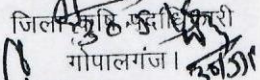 जिला कृषि पदाधिकारी
गोपालगंज।